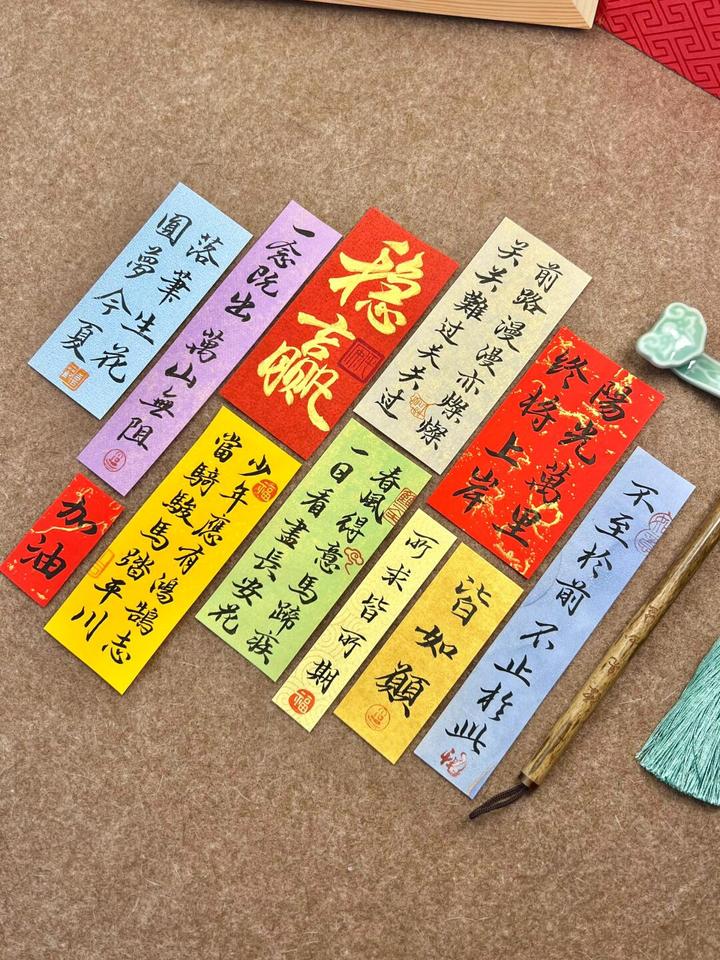 落筆生花
圓夢今夏
一念既出 萬山無阻
稳赢
前路漫漫亦燦燦
关关難过关关过
陽光萬里
终将上岸
加油
少年應有鴻鵠志
當騎駿馬踏平川
春風得意馬蹄疾
一日看盡長安花
所求皆所期
福
皆如願
不至於前 不止於此